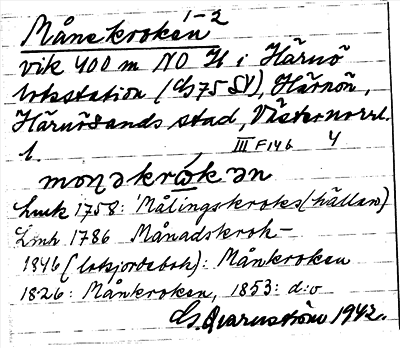 Månekroken 1-2
vik 400 m NO H i Härnö
lotsstation (Gs 75 SV), Härnön,
Härnösands stad, Västernorrl.
l. III F146 4
moṇəkrω̄́kən
Lmk 1758: Målingskroks(hällan)
Lmh 1786 Månadskrok-
1846 (lotsjordebok): Månkroken
1826: Månkroken, 1853: d:o
G. Qvarnström 1942.